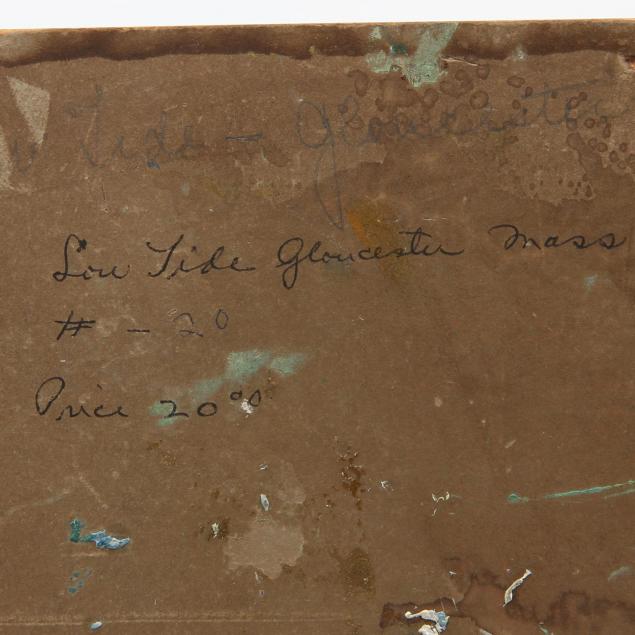 Tide - Gloucester
Low Tide Gloucester Mass
# - 20
Price 20.00